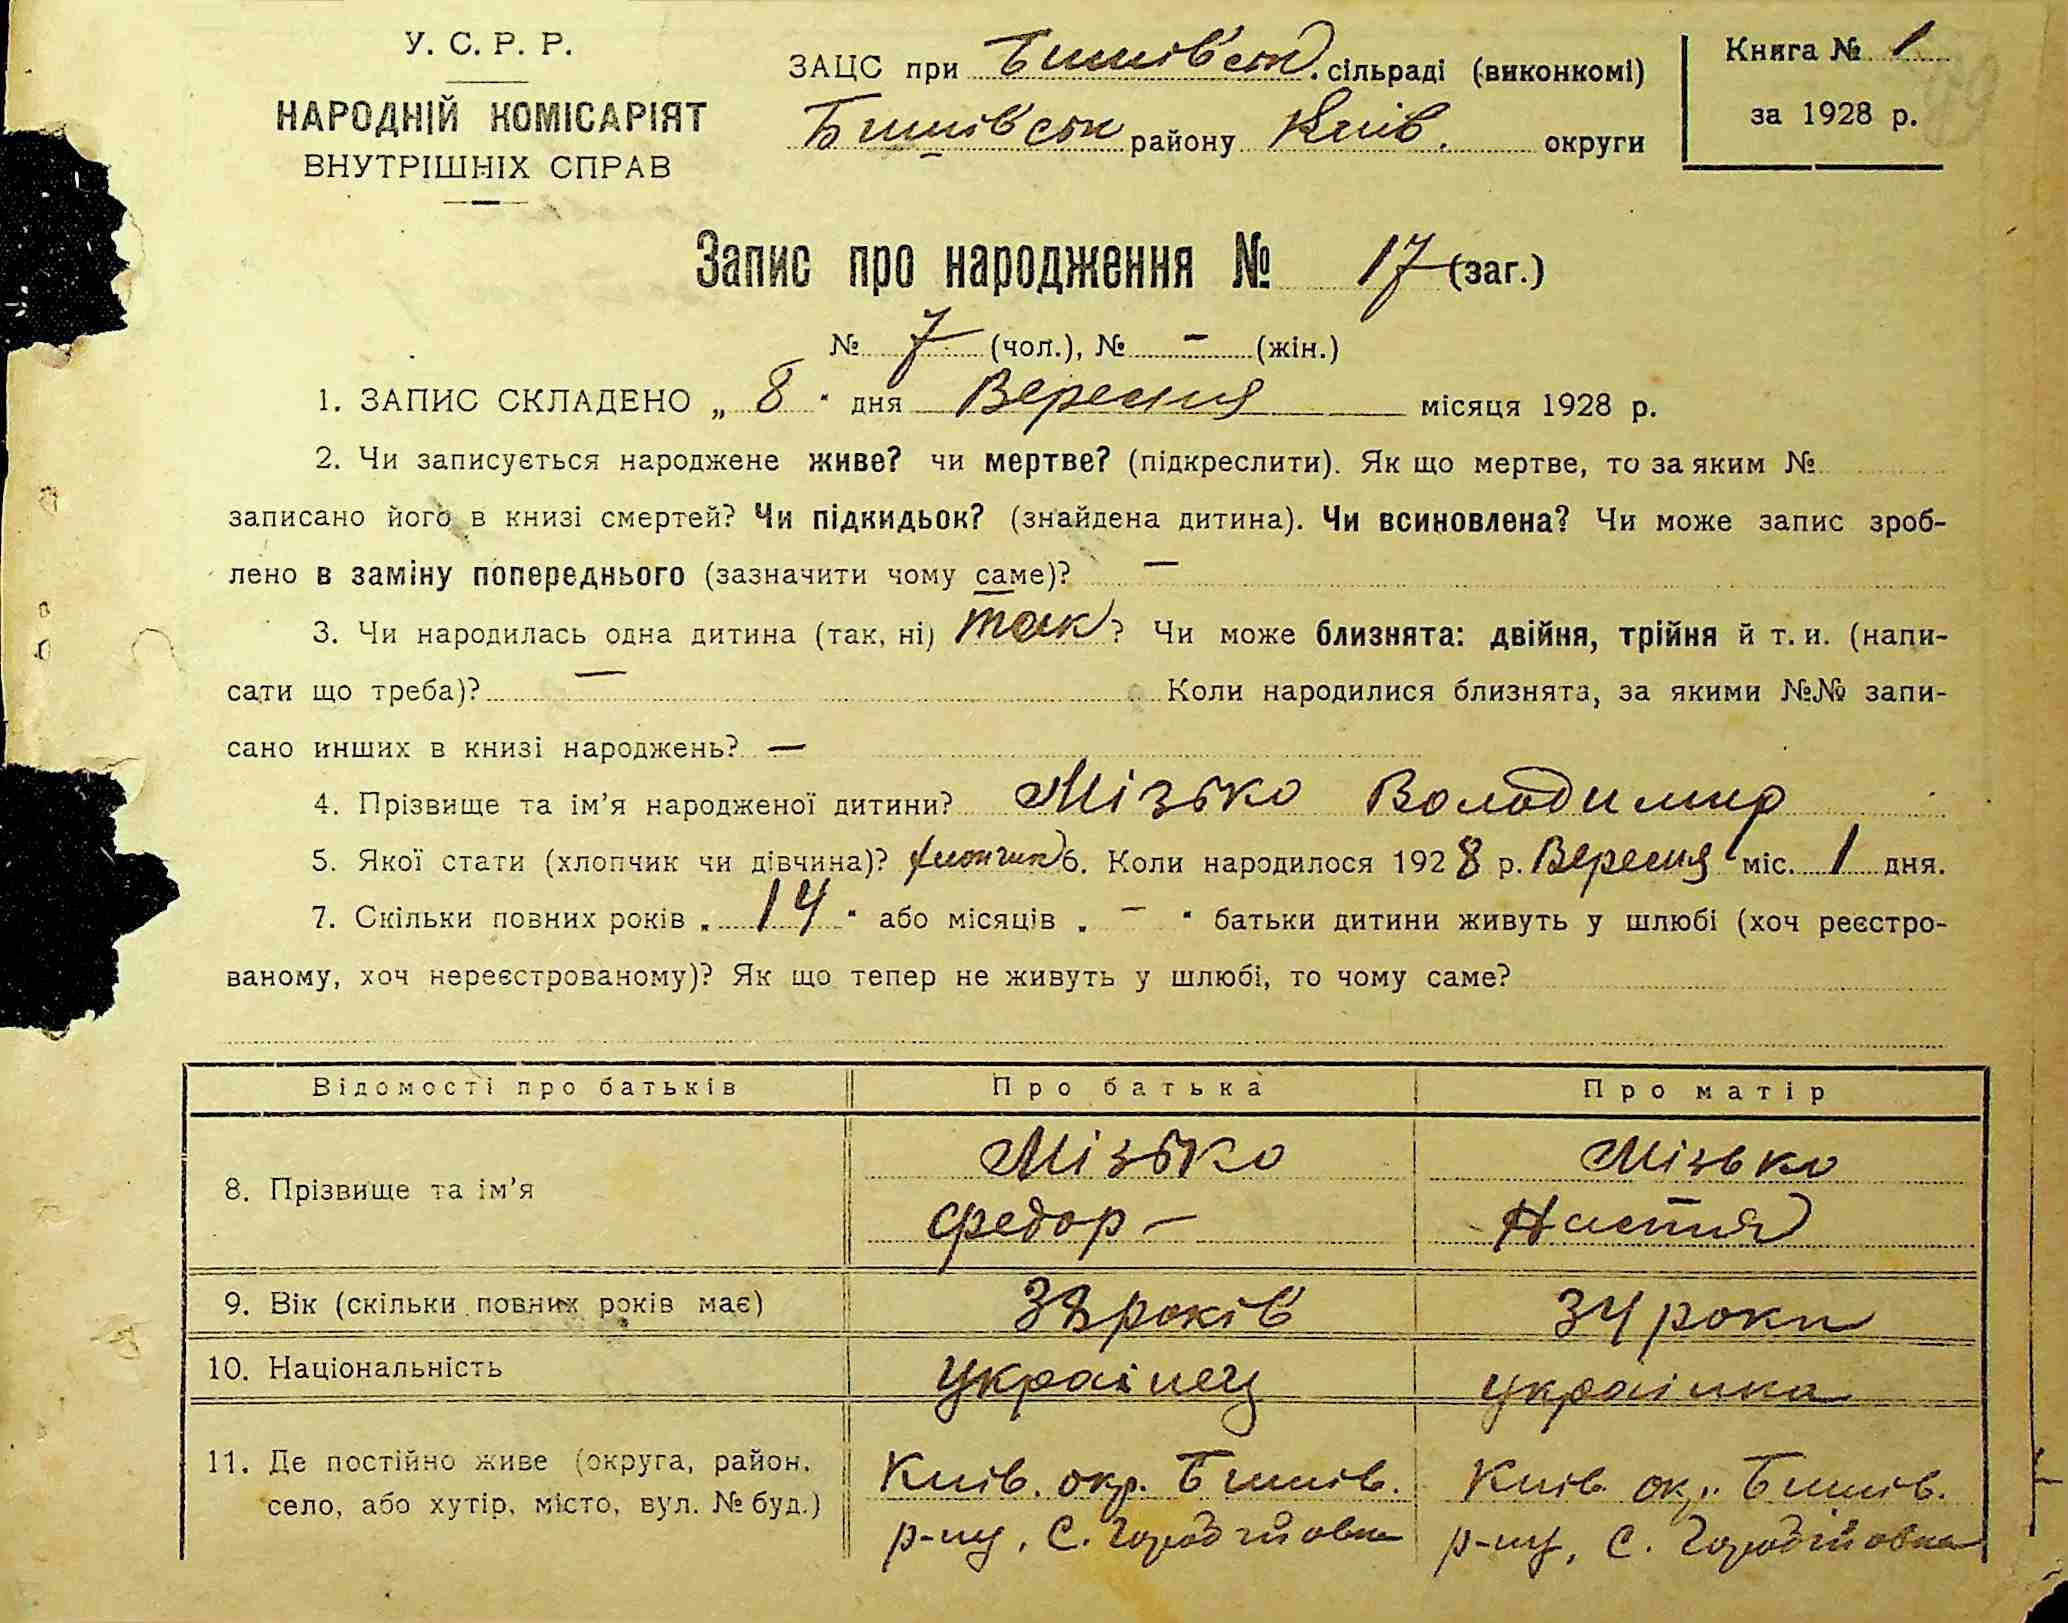 У. С. Р. Р.
НАРОДНІЙ КОМІСАРІЯТ
ВНУТРІШНІХ СПРАВ
ЗАЦС при Бишівськ. сільраді (виконкомі)
Бишівськ району Київ. округи
Книга № 1
за 1928 р.
Запис про народження № 17 (заг.)
№ 7 (чол.), № — (жін.)
1. ЗАПИС СКЛАДЕНО „ 8 " дня Вересня місяця 1928 р.
2. Чи записується народжене живе? чи мертве? (підкреслити). Як що мертве, то за яким №
записано його в книзі смертей? Чи підкидьок? (знайдена дитина). Чи всиновлена? Чи може запис зроб-
лено в заміну попереднього (зазначити чому саме)? —
3. Чи народилась одна дитина (так, ні) так? Чи може близнята: двійня, трійня й т. и. (напи-
сати що треба)? — Коли народилися близнята, за якими №№ запи-
сано инших в книзі народжень? —
4. Прізвище та ім'я народженої дитини? Мізько Володимир
5. Якої стати (хлопчик чи дівчина)? хлопчик 6. Коли народилося 1928 р. Вересня міс. 1 дня.
7. Скільки повних років „ 14 " або місяців „ — " батьки дитини живуть у шлюбі (хоч реєстро-
ваному, хоч нереєстрованому)? Як що тепер не живуть у шлюбі, то чому саме?
Відомості про батьків Про батька Про матір
8. Прізвище та ім'я Мізько Федор — Мізько Настя
9. Вік (скільки повних років має) років 34 роки
10. Національність українец українка
11. Де постійно живе (округа, район, Київ. окр. Бишів. Київ. окр. Бишів.
село, або хутір, місто, вул. № буд.) р-ну, С. р-ну, С.